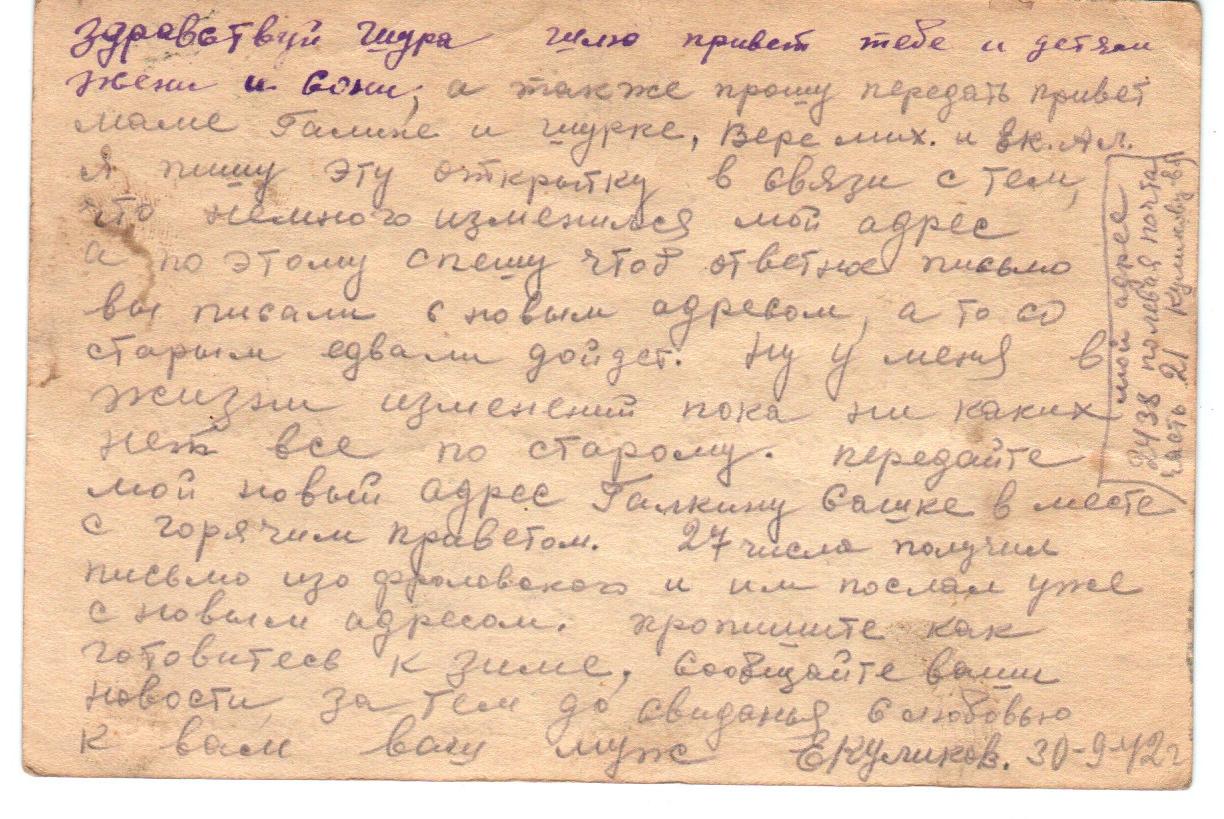 здравствуй шура шлю привет тебе и детям
жени и Сони, а также прошу передать привет
маме Галине и шурке, Вере мих. и вк. Ал.
я пишу эту открытку в связи с тем,
что немного изменился мой адрес
а по этому спешу чтоб ответное письмо
вы писали с новым адресом, а то со
старым едвали дойдет. Ну у меня в
жизни изменений пока ни каких
нет все по старому. передайте
мой новый адрес Галкину Сашке в месте
с горячим приветом. 27 числа получил
письмо изо фроловского и им послал уже
с новым адресом. пропишите как
готовитесь к зиме, Сообщайте ваши
новости, за тем до свиданья с любовью
к вам ваш муж ЕКуликов. 30-9-42г
мой адрес
2438 полевая почта
часть 21 Куликову